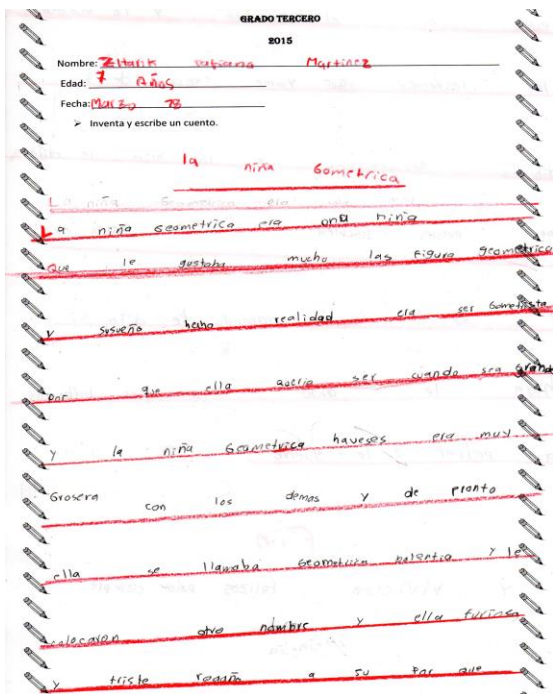 GRADO TERCERO
2015
Nombre: Martinez
Edad: 7 Años
Fecha: Marzo 28
➢ Inventa y escribe un cuento.
la niña Gometrica
La niña Geometrica era
La niña Geometrica era ona niña
Que le gustaba mucho las figura geometricas
y susueño hecho realidad era ser Gometrista
por que ella queria ser cuando sea grande
y la niña Geametrica haveses era muy
Grosera con los demas y de pronto
ella se llamaba Geometrica y le
colocaron otro nombre y ella furiosa
y triste regaño a su por que